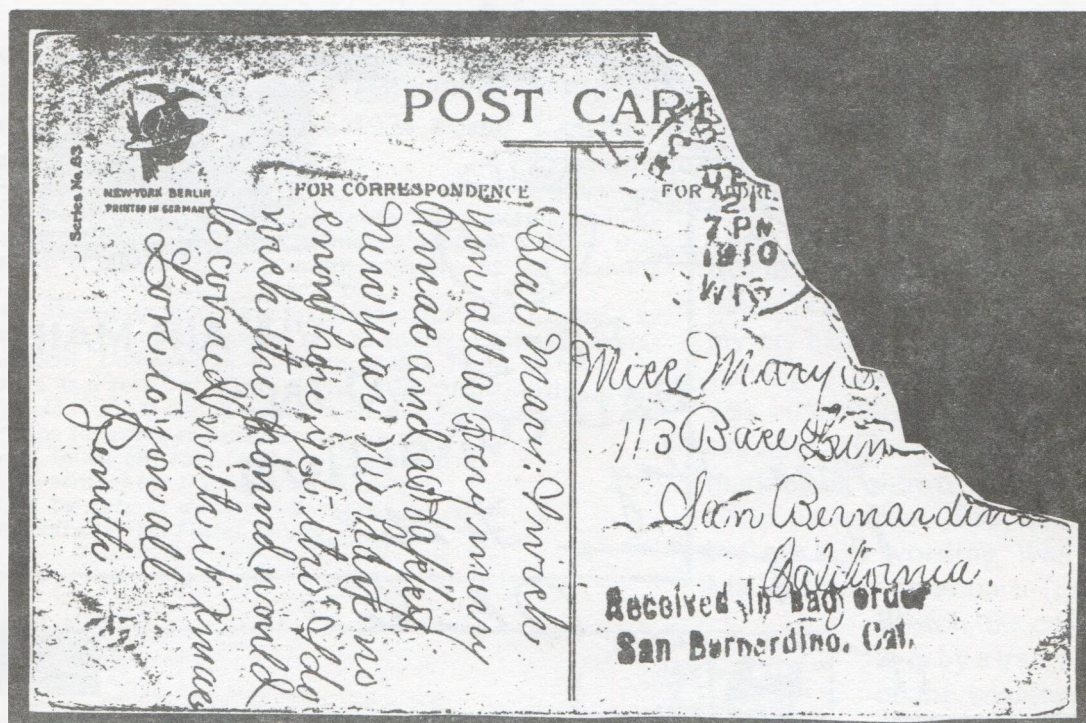 POST CAR
Series No. 43
NEW-YORK BERLIN
PRINTED IN GERMANY
FOR CORRESPONDENCE
FOR ADDRE
21
7 PM
1910
WIS
Dear Mary: I wish
you all a very merry
Xmas and a Happy
New Year. We have no
snow here yet, tho' I do
wish the ground would
be covered with it Xmas
Love to you all
Zenith
Miss Mary
113 Base Line
San Bernardino
California.
Received in bad order
San Bernardino, Cal.